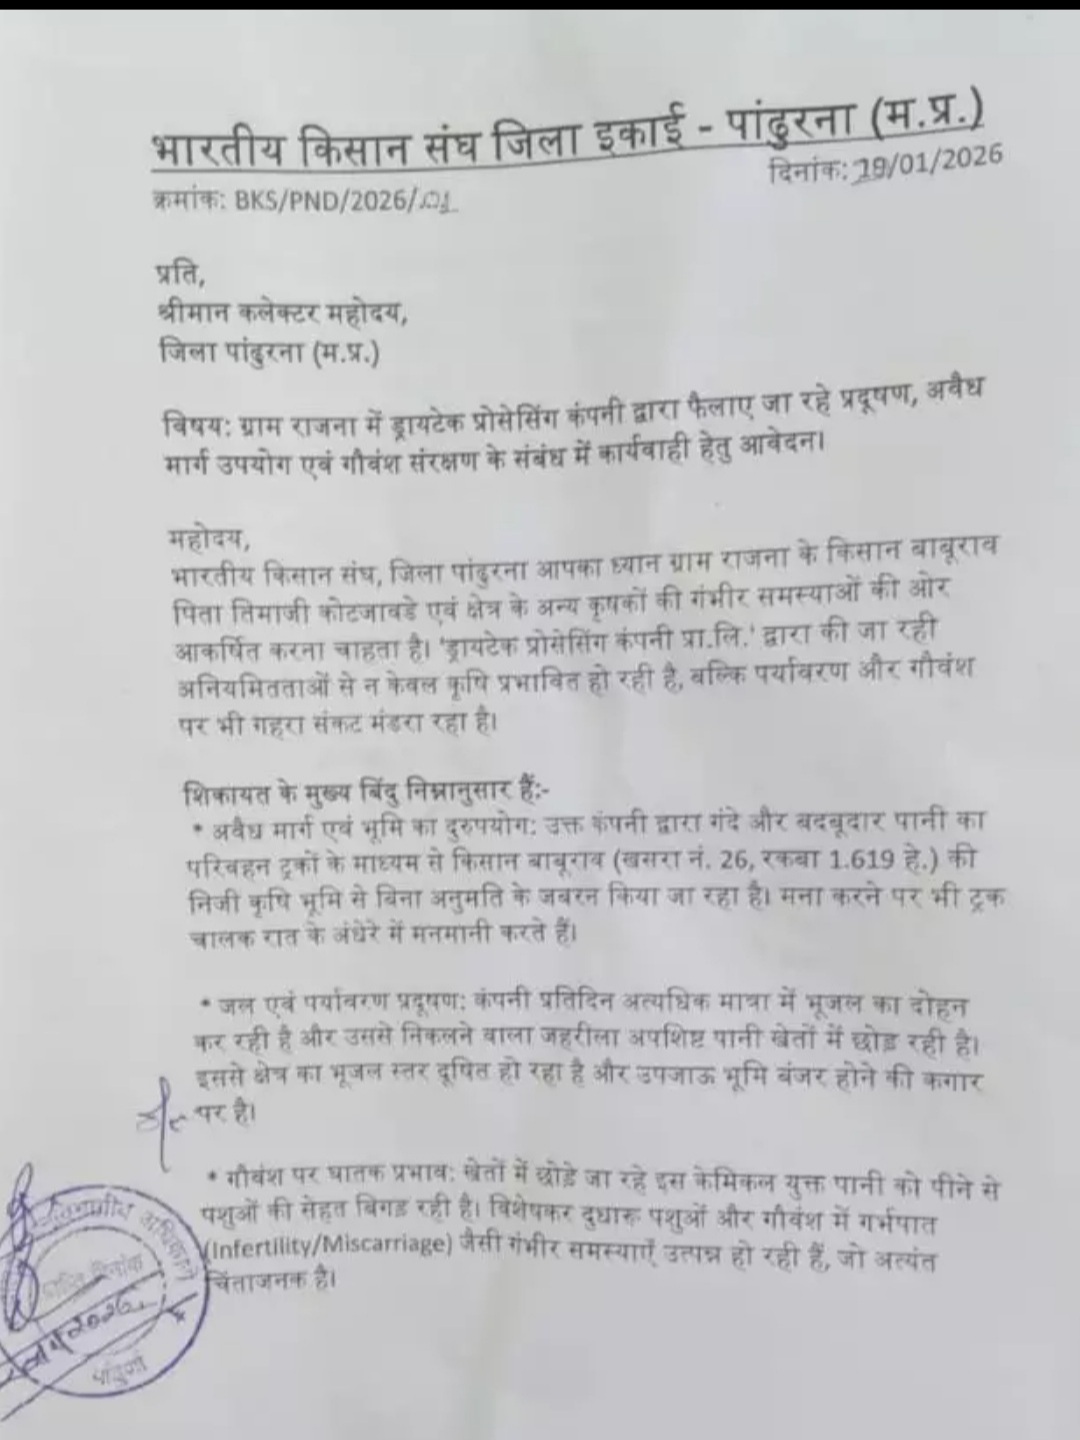 भारतीय किसान संघ जिला इकाई - पांढुरना (म.प्र.)
दिनांक: 19/01/2026
क्रमांक: BKS/PND/2026/01
प्रति,
श्रीमान कलेक्टर महोदय,
जिला पांढुरना (म.प्र.)
विषय: ग्राम राजना में ड्रायटेक प्रोसेसिंग कंपनी द्वारा फैलाए जा रहे प्रदूषण, अवैध
मार्ग उपयोग एवं गौवंश संरक्षण के संबंध में कार्यवाही हेतु आवेदन।
महोदय,
भारतीय किसान संघ, जिला पांढुरना आपका ध्यान ग्राम राजना के किसान बाबूराव
पिता तिमाजी कोटजावडे एवं क्षेत्र के अन्य कृषकों की गंभीर समस्याओं की ओर
आकर्षित करना चाहता है। 'ड्रायटेक प्रोसेसिंग कंपनी प्रा.लि.' द्वारा की जा रही
अनियमितताओं से न केवल कृषि प्रभावित हो रही है, बल्कि पर्यावरण और गौवंश
पर भी गहरा संकट मंडरा रहा है।
शिकायत के मुख्य बिंदु निम्नानुसार हैं:-
* अवैध मार्ग एवं भूमि का दुरुपयोग: उक्त कंपनी द्वारा गंदे और बदबूदार पानी का
परिवहन ट्रकों के माध्यम से किसान बाबूराव (खसरा नं. 26, रकबा 1.619 हे.) की
निजी कृषि भूमि से बिना अनुमति के जबरन किया जा रहा है। मना करने पर भी ट्रक
चालक रात के अंधेरे में मनमानी करते हैं।
* जल एवं पर्यावरण प्रदूषण: कंपनी प्रतिदिन अत्यधिक मात्रा में भूजल का दोहन
कर रही है और उससे निकलने वाला जहरीला अपशिष्ट पानी खेतों में छोड़ रही है।
इससे क्षेत्र का भूजल स्तर दूषित हो रहा है और उपजाऊ भूमि बंजर होने की कगार
पर है।
* गौवंश पर घातक प्रभाव: खेतों में छोड़े जा रहे इस केमिकल युक्त पानी को पीने से
पशुओं की सेहत बिगड़ रही है। विशेषकर दुधारू पशुओं और गौवंश में गर्भपात
(Infertility/Miscarriage) जैसी गंभीर समस्याएँ उत्पन्न हो रही हैं, जो अत्यंत
चिंताजनक है।